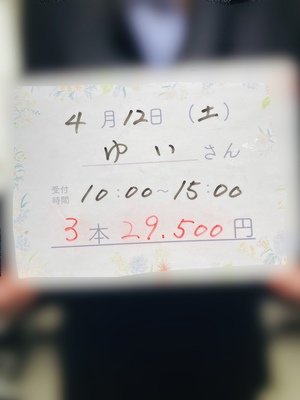 4月12日(土)
ゆいさん
受付時間 10:00~15:00
3本 29.500円